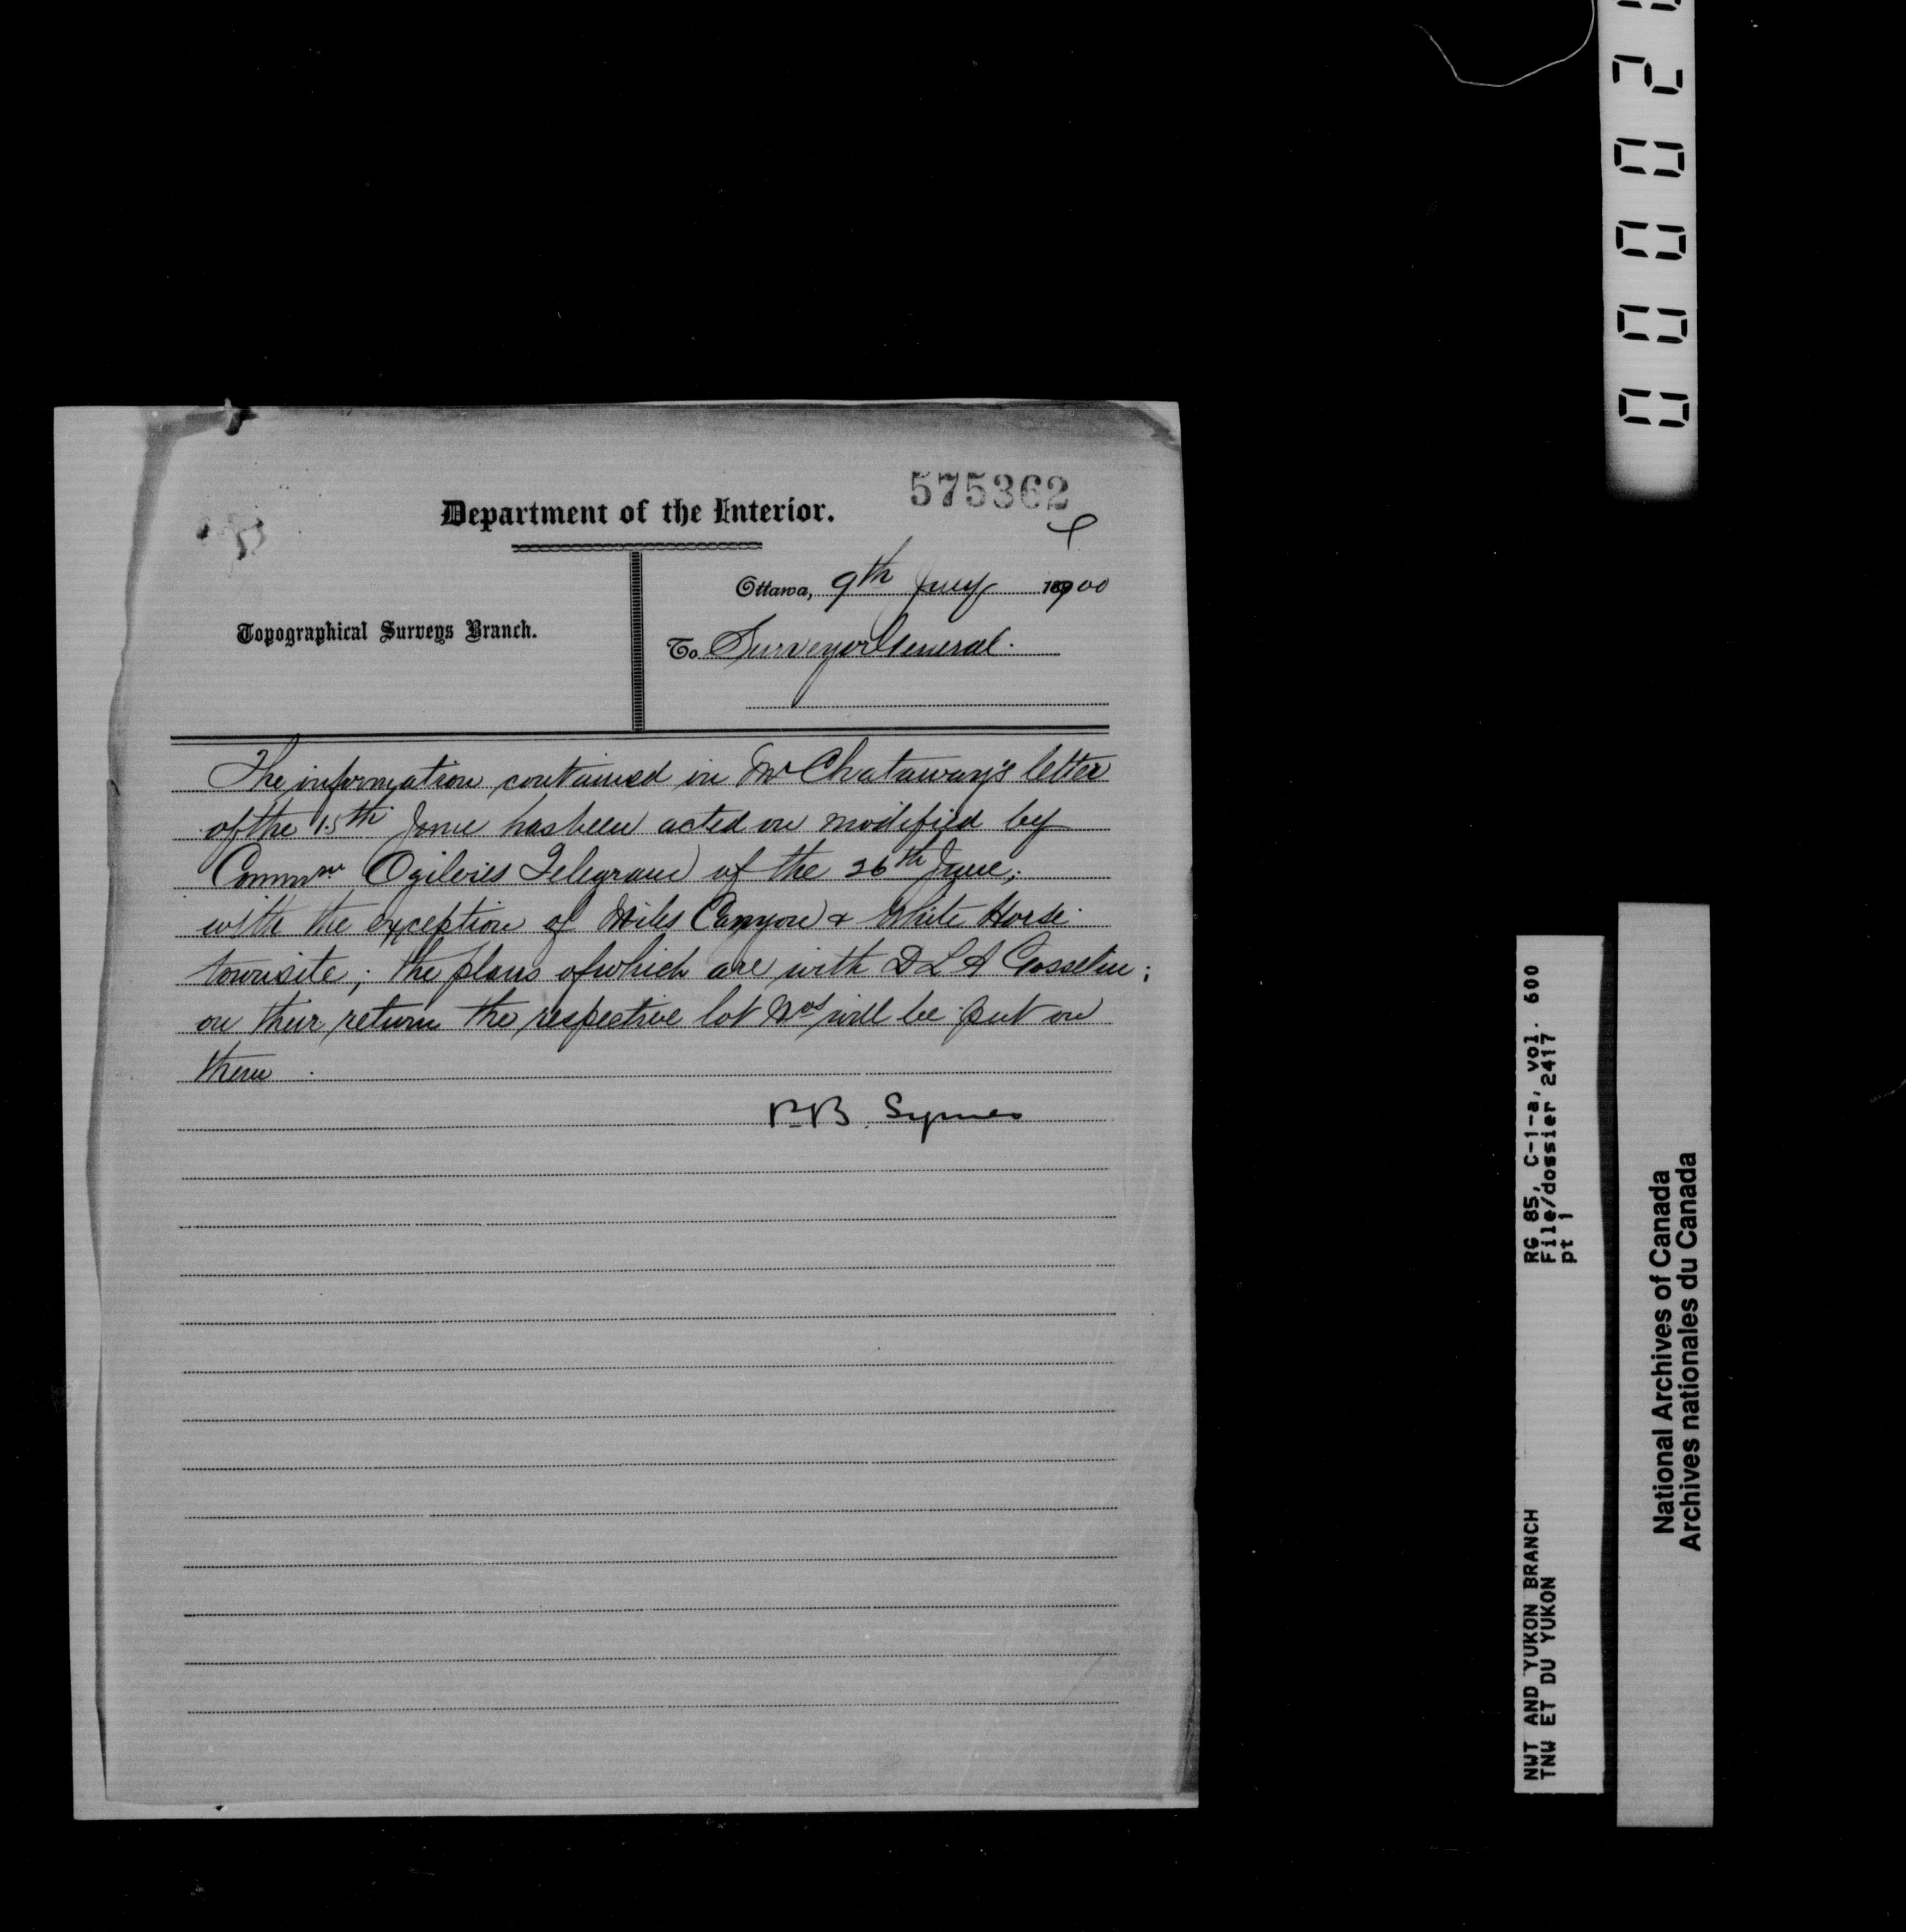 575362
Department of the Interior.
Ottawa, 9th July 1900
Topographical Surveys Branch.
To Surveyor General.
The information contained in Mr Chataway's letter
of the 15th June has been acted on modified by
Commnr Ogilvies Telegram of the 26th June;
with the exception of Miles Canyon & White Horse
townsite; the plans of which are with D L A Gosselin;
on their return the respective lot Nos will be put on
them.
P.B. Symes
RG 85, C-1-a, vol. 600
File/dossier 2417
pt 1
NWT AND YUKON BRANCH
TNW ET DU YUKON
National Archives of Canada
Archives nationales du Canada